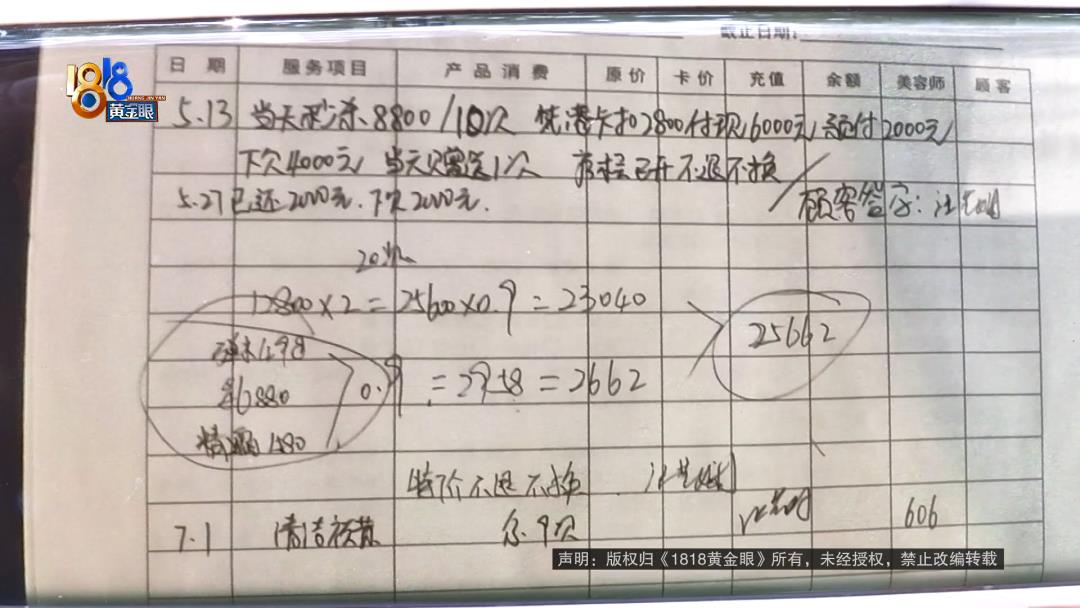 1818
黄金眼
截止日期:
日期 服务项目 产品消费 原价 卡价 充值 余额 美容师 顾客
5.13 当天秒杀8800/10次 凭港卡扣2800付现6000元,预付2000元
下次4000元 当天又赠送1次 已开不退不换
5.27已还2000元.下欠2000元. 顾客签字:
20次
12800×2=25600×0.9=23040
25662
1298
680 0.9 =2958=2662
980
特价不退不换
7.1 清洁 余9次 606
声明:版权归《1818黄金眼》所有,未经授权,禁止改编转载